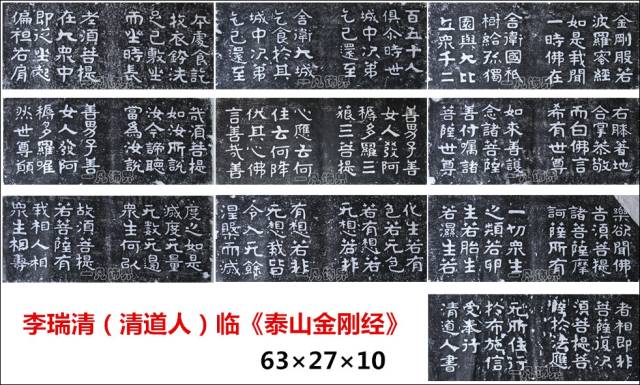 金剛般若
波羅蜜經
如是我聞
一時佛在
舍衛國祇
樹給孤獨
園與大比
丘衆千二
百五十人
俱尒時世
城中次弟
乞己還至
舍衛大城
乞食於其
城中次弟
乞己還至
本處食訖
收衣鉢洗
足已敷坐
而坐時長
老須菩提
在大衆中
即從坐起
偏袒右肩
右膝著地
合掌恭敬
而白佛言
希有世尊
如来善護
念諸菩薩
善付囑諸
菩薩世尊
善男子善
女人發阿
耨多羅三
藐三菩提
心應云何
住云何降
伏其心佛
言善哉善
哉須菩提
如汝所說
汝今諦聽
當為汝說
善男子善
女人發阿
耨多羅唯
然世尊願
樂欲聞佛
告須菩提
諸菩薩摩
訶薩所應
一切衆生
之類若卵
生若胎生
若濕生若
化生若有
色若无色
若有想若
无想若非
有想若非
无想我皆
令入无餘
涅槃而滅
度之如是
滅度无量
无數无邊
衆生何以
故須菩提
若菩薩有
我相人相
衆生相壽
者相即非
菩薩復次
須菩提菩
薩於法應
无所住行
於布施信
受奉行
清道人書
李瑞清（清道人）临《泰山金刚经》
63×27×10